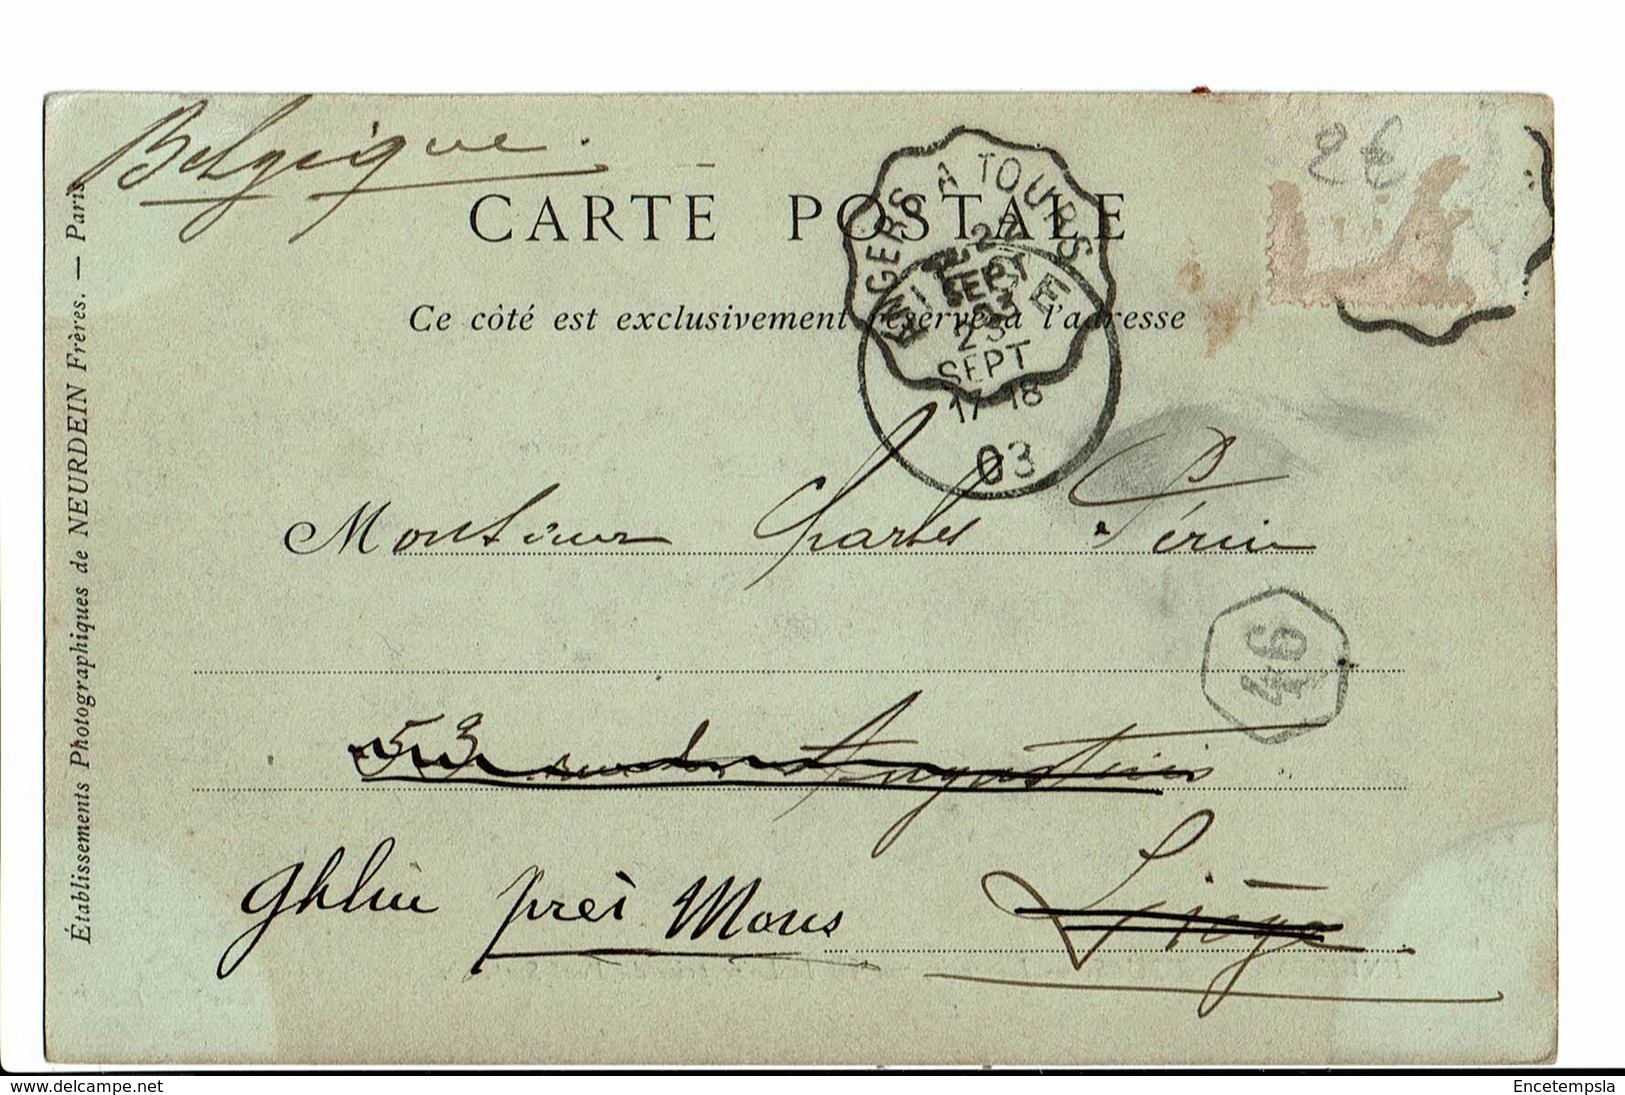 Belgique.
2€
CARTE POSTALE
ANGERS A TOURS
22
SEPT
03
LIEGE
23
SEPT
17-18
03
Ce côté est exclusivement réservé à l'adresse
Monsieur Charles Périn
46
53 rue des Augustins
Ghlin près Mons Liège
Établissements Photographiques de NEURDEIN Frères. — Paris
delcampe.net
Encetempsla